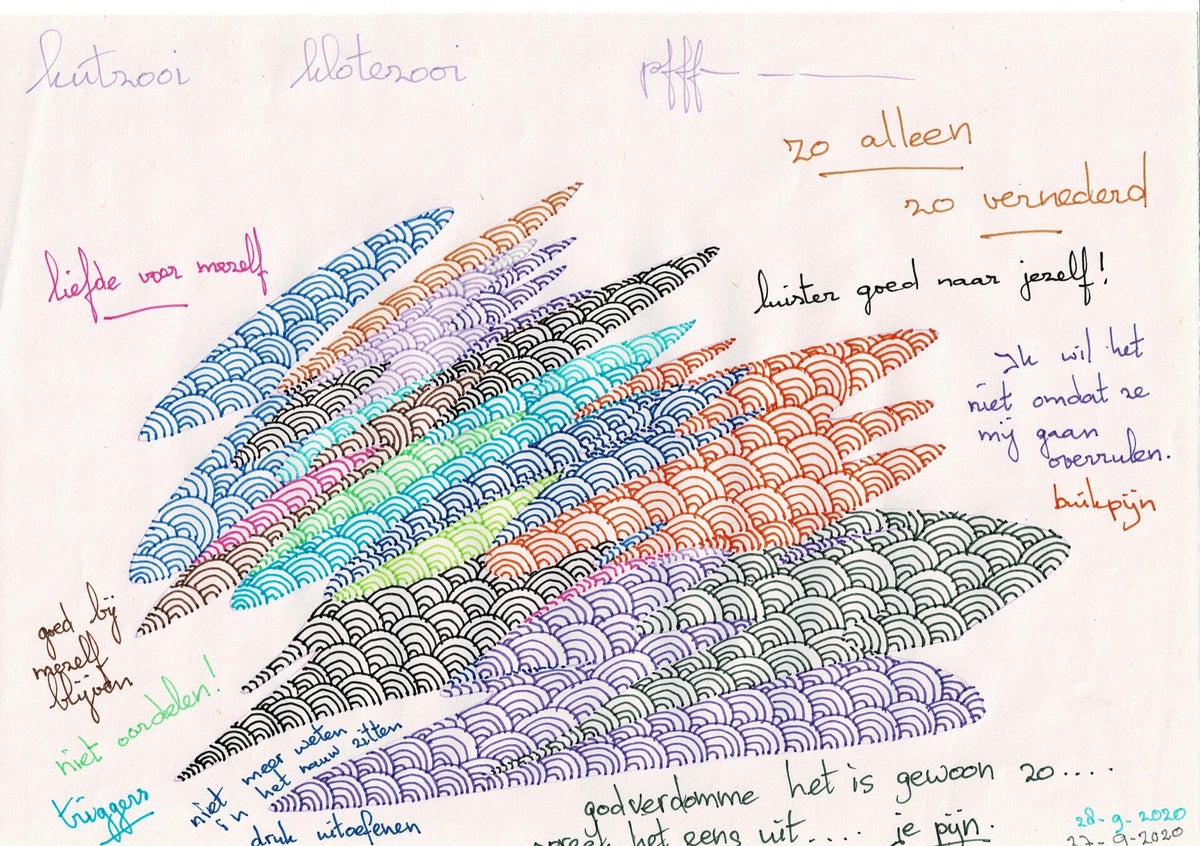 kutzooi
klotezooi
pfff— — ———
zo alleen
zo vernederd
liefde voor mezelf
luister goed naar jezelf!
Ik wil het
niet omdat ze
mij gaan
overrulen.
buikpijn
goed bij
mezelf
blijven
niet oordelen!
triggers
niet meer weten
in het nauw zitten
druk uitoefenen
godverdomme het is gewoon zo....
het eens uit.... je pijn.
28-9-2020
27-9-2020